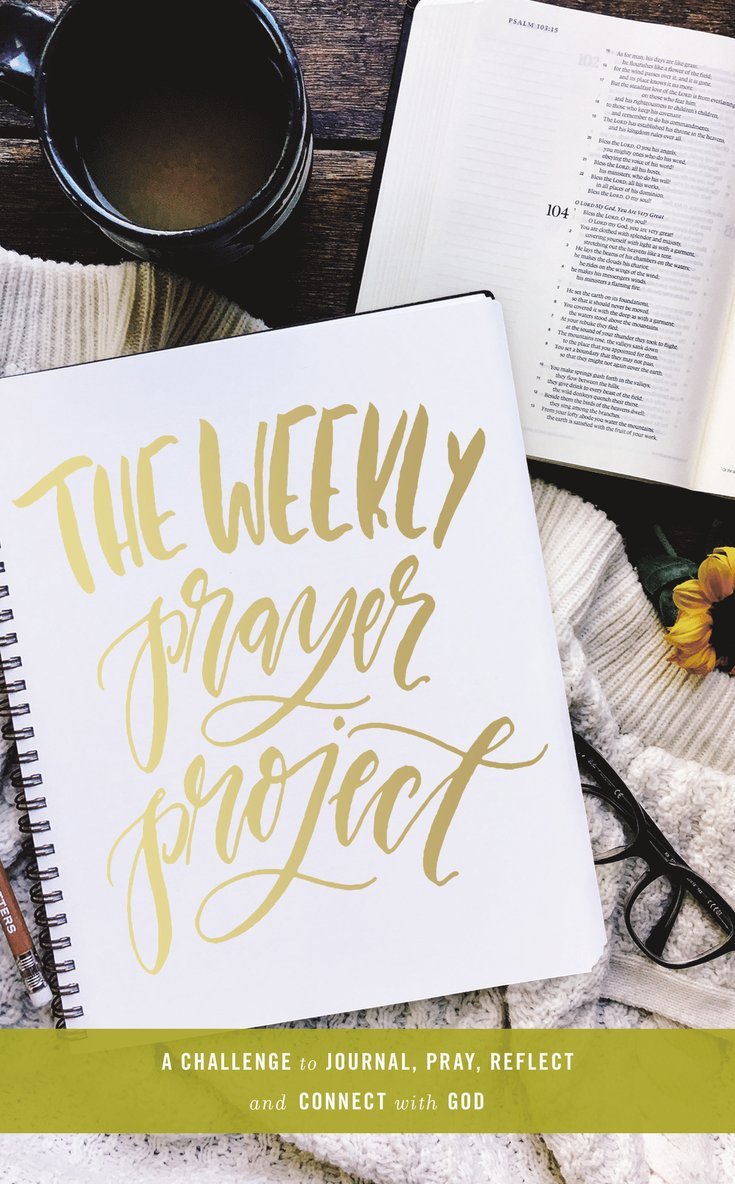 PSALM 103:15
15 As for man, his days are like grass;
he flourishes like a flower of the field;
16 for the wind passes over it, and it is gone,
and its place knows it no more.
17 But the steadfast love of the LORD is from everlasting
on those who fear him,
and his righteousness to children's children,
18 to those who keep his covenant
and remember to do his commandments.
19 The LORD has established his throne in the heavens,
and his kingdom rules over all.
20 Bless the LORD, O you his angels,
you mighty ones who do his word,
obeying the voice of his word!
21 Bless the LORD, all his hosts,
his ministers, who do his will!
22 Bless the LORD, all his works,
in all places of his dominion.
Bless the LORD, O my soul!
O LORD My God, You Are Very Great
104 Bless the LORD, O my soul!
O LORD my God, you are very great!
You are clothed with splendor and majesty,
2 covering yourself with light as with a garment,
stretching out the heavens like a tent.
3 He lays the beams of his chambers on the waters;
he makes the clouds his chariot;
he rides on the wings of the wind;
4 he makes his messengers winds,
his ministers a flaming fire.
5 He set the earth on its foundations,
so that it should never be moved.
6 You covered it with the deep as with a garment;
the waters stood above the mountains.
7 At your rebuke they fled;
at the sound of your thunder they took to flight.
8 The mountains rose, the valleys sank down
to the place that you appointed for them.
9 You set a boundary that they may not pass,
so that they might not again cover the earth.
10 You make springs gush forth in the valleys;
they flow between the hills;
11 they give drink to every beast of the field;
the wild donkeys quench their thirst.
12 Beside them the birds of the heavens dwell;
they sing among the branches.
13 From your lofty abode you water the mountains;
the earth is satisfied with the fruit of your work.
THE WEEKLY
prayer
project
TTERS
A CHALLENGE to JOURNAL, PRAY, REFLECT
and CONNECT with GOD